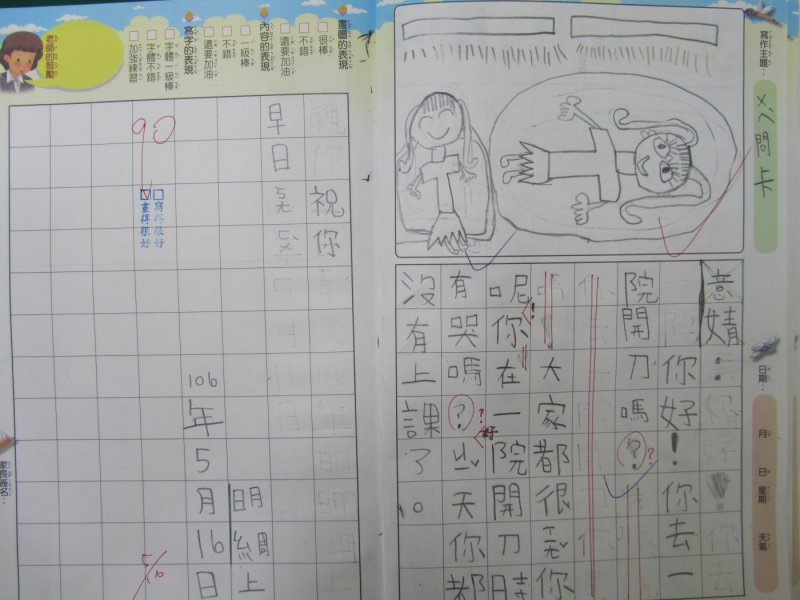 寫作主題：
ㄨㄟˋ問卡
日期： 月 日 星期 天氣
意婧：
你好！你去一
院開刀嗎？
大家都很 你
呢你在一院開刀時
好
有哭嗎？ 天你都
沒有上課了。
畫圖的表現
很棒
不錯
還要加油
內容的表現
一級棒
不錯
還要加油
寫字的表現
字體一級棒
字體不錯
加強練習
老師的鼓勵
祝你
早日
明 上
106年5月16日
90
寫得很好
畫得很好
家長簽名：